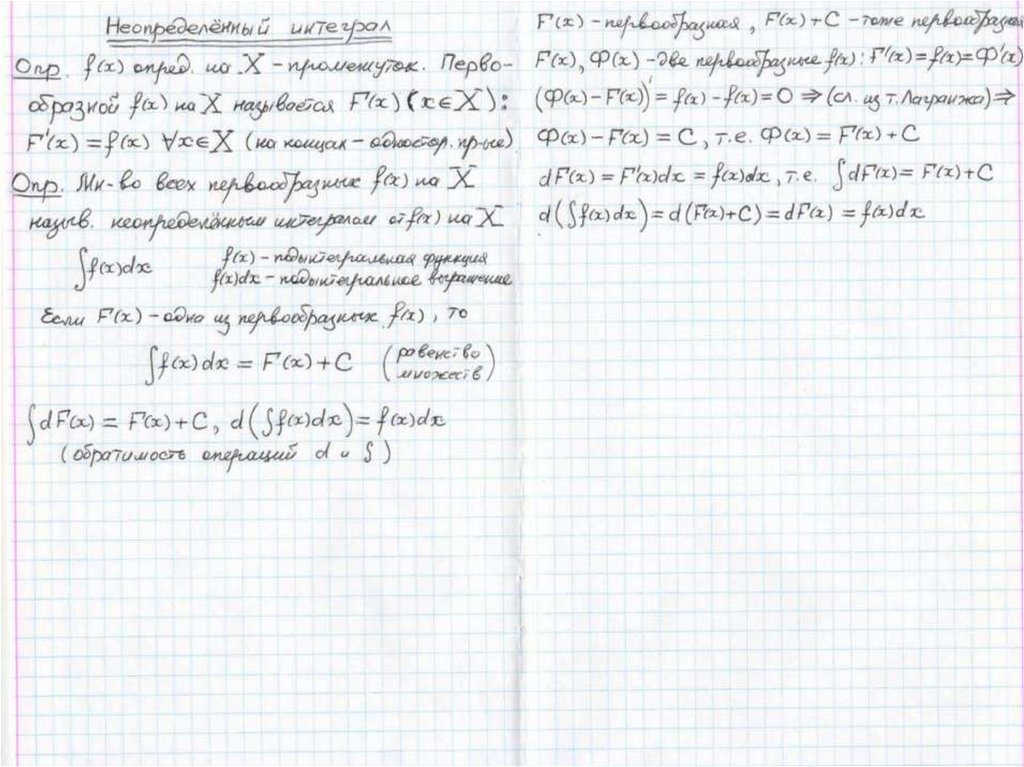 Неопределённый интеграл
Опр. f(x) опред. на X – промежуток. Перво-
образной f(x) на X называется F(x) (x∈X):
F'(x) = f(x) ∀x∈X (на концах – одностор. пр-ые)
Опр. Мн-во всех первообразных f(x) на X
назыв. неопределённым интегралом от f(x) на X
∫f(x)dx f(x) – подынтегральная функция
f(x)dx – подынтегральное выражение
Если F(x) – одна из первообразных f(x), то
∫f(x)dx = F(x) + C (равенство множеств)
∫dF(x) = F(x) + C, d(∫f(x)dx) = f(x)dx
(обратимость операций d и ∫)
F(x) – первообразная, F(x)+C – тоже первообразная
F(x), Ф(x) – две первообразные f(x): F'(x) = f(x) = Ф'(x)
(Ф(x) – F(x))' = f(x) – f(x) = 0 ⇒ (сл. из т. Лагранжа) ⇒
Ф(x) – F(x) = C, т.е. Ф(x) = F(x) + C
dF(x) = F'(x)dx = f(x)dx, т.е. ∫dF(x) = F(x) + C
d(∫f(x)dx) = d(F(x)+C) = dF(x) = f(x)dx